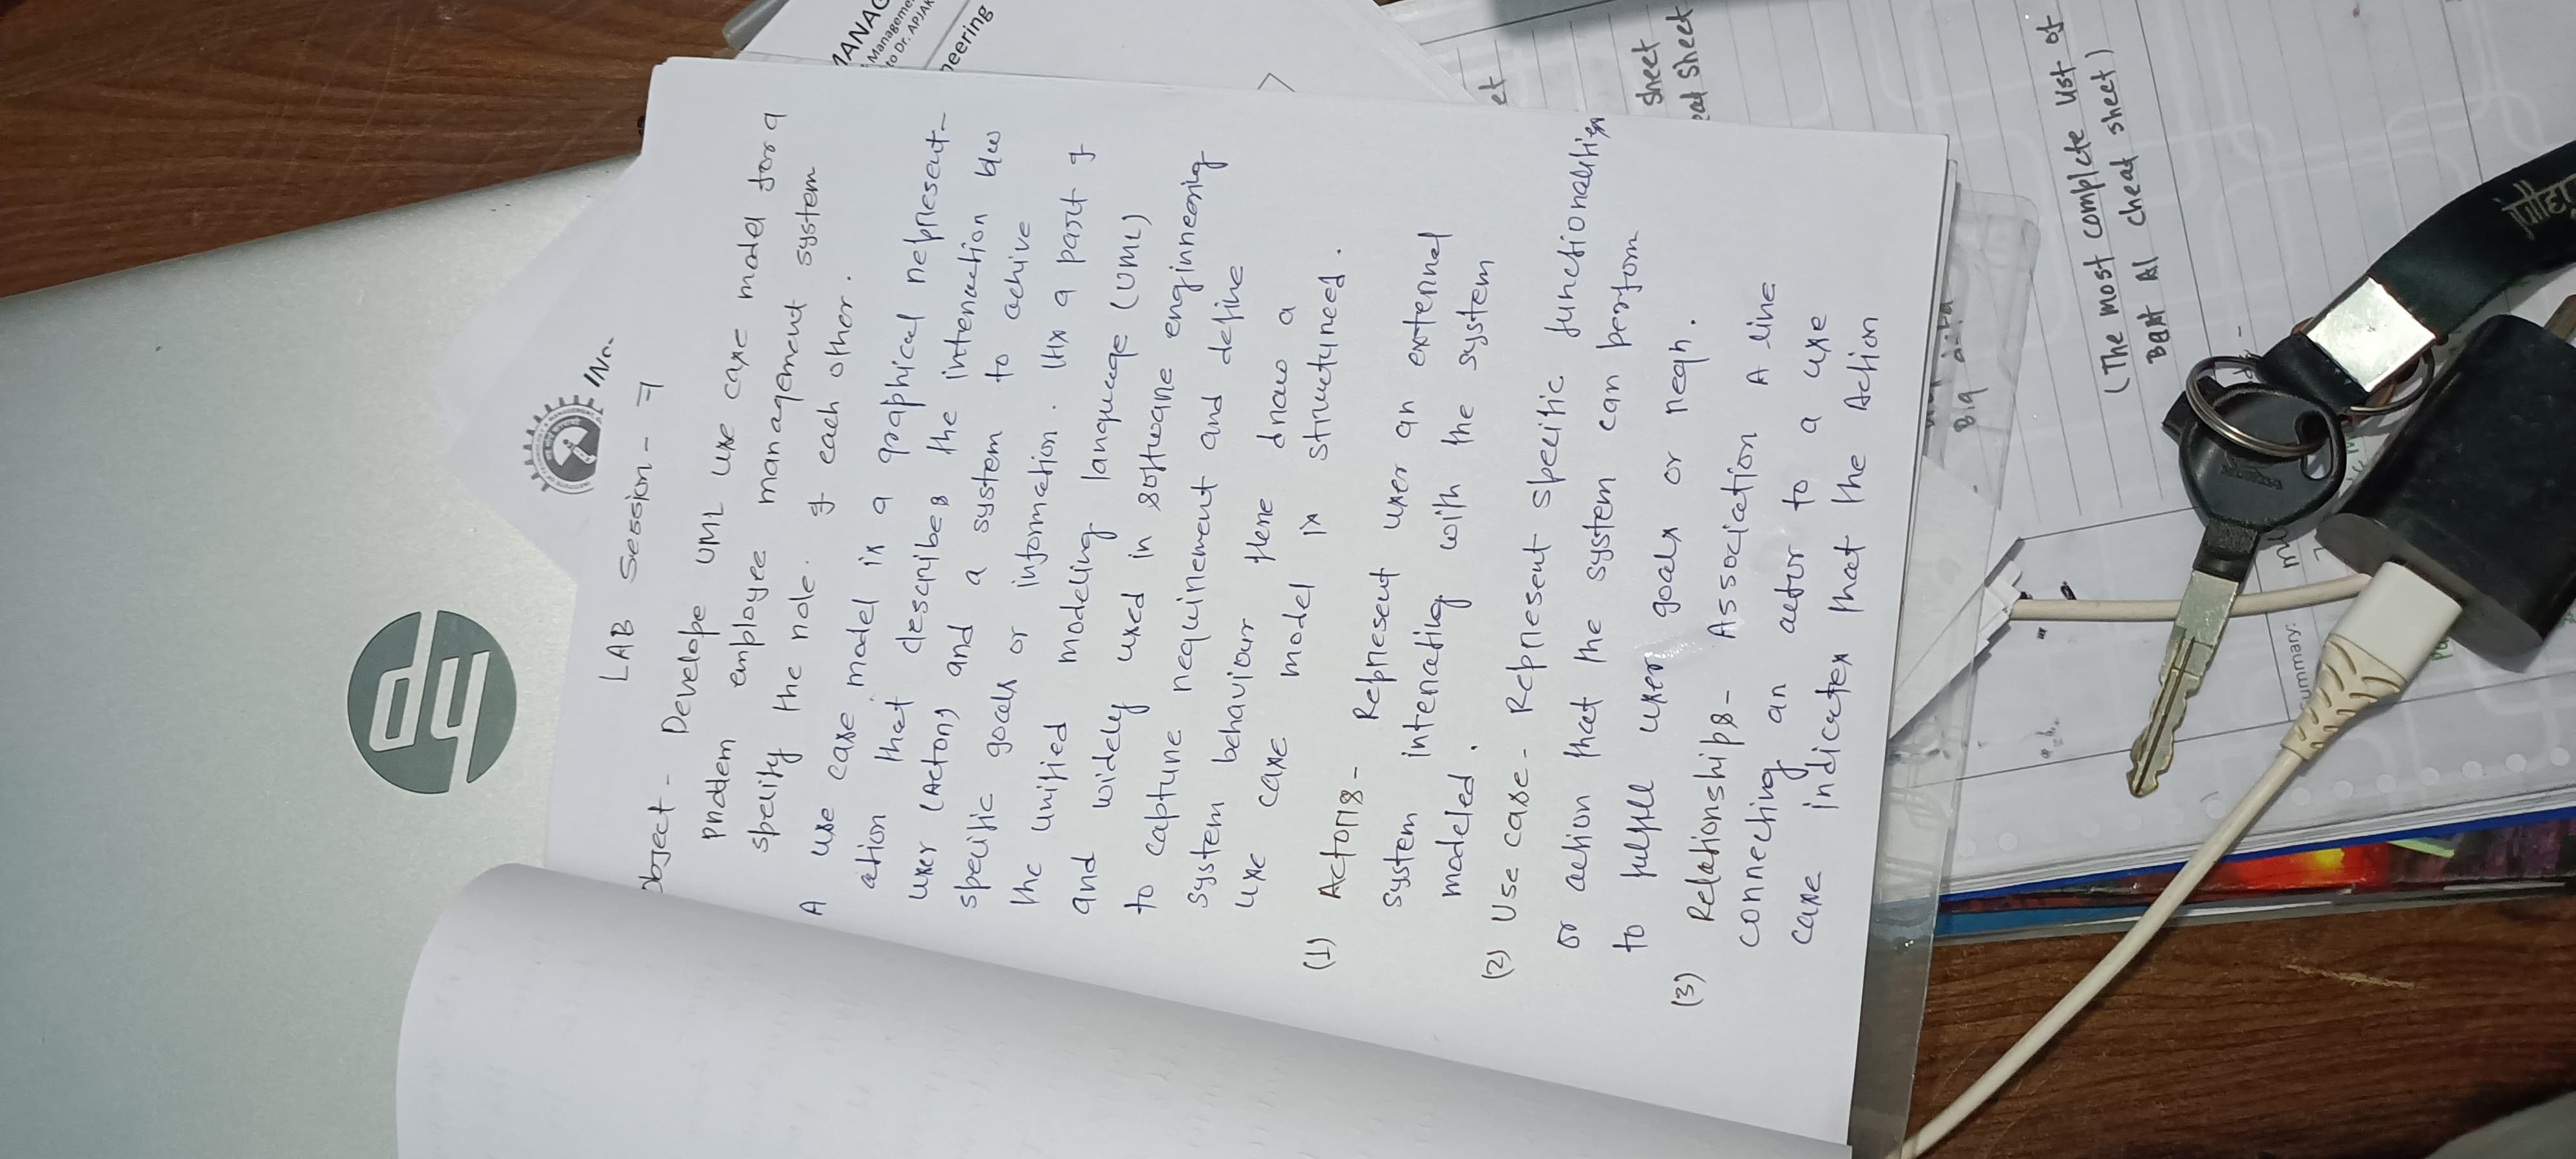 LAB Session - 7
Object - Develope UML use case model for a
problem employee management system
specify the role. of each other.
A use case model is a graphical represent-
ation that describes the interaction b/w
user (Actor) and a system to achive
specific goals or information. It is a part of
the unified modeling language (UML)
and widely used in software enginneering
to capture requirement and define
system behaviour Here draw a
use case model is structured.
(1) Actors - Represent user an external
system interacting with the system
modeled.
(2) Use case - Represent specific functionalities
or action that the system can perform
to fulfill user goals or reqn.
(3) Relationships - Association A line
connecting an actor to a use
case indicates that the Action
hp
MANAG
Management
to Dr. APJAK
neering
et
sheet
eat sheet
(The most complete list of
Best AI cheat sheet)
Big data
ummary: